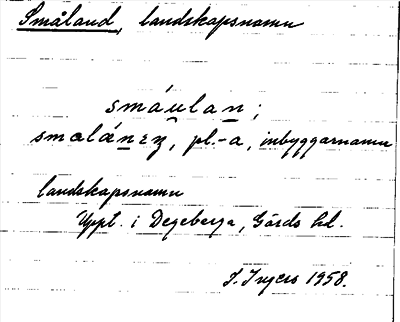 Småland, landskapsnamn
småulan;
smalánez, pl.-a, inbyggarnamn
landskapsnamn
Uppt. i Degeberga, Gärds hd.
I. Ingers 1958.